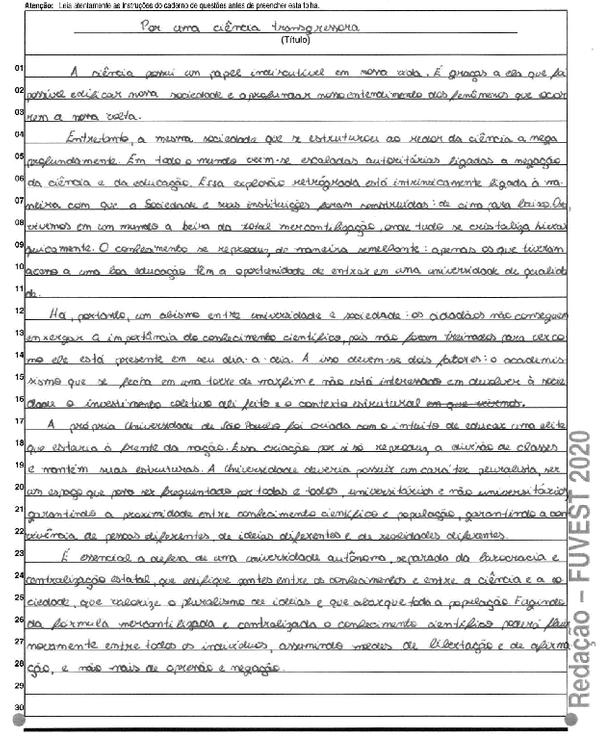 Atenção: Leia atentamente as instruções do caderno de questões antes de preencher esta folha.
Por uma ciência transgressora
(Título)
01 A ciência possui um papel indiscutível em nossa vida. É graças a ela que foi
02 possível edificar nossa sociedade e aprofundar nosso entendimento dos fenômenos que ocor
03 rem a nossa volta.
04 Entretanto, a mesma sociedade que se estruturou ao redor da ciência a nega
05 profundamente. Em todo o mundo veem-se escaladas autoritárias ligadas a negação
06 da ciência e da educação. Essa explosão retrógrada está intrinsicamente ligada à ma-
07 neira com que a Sociedade e suas instituições foram construídas: de cima para baixo.
08 vivemos em um mundo a beira da total mercantilização, onde tudo se cristaliza hierar
09 quicamente. O conhecimento se reproduz de maneira semelhante: apenas os que tiveram
10 acesso a uma boa educação têm a oportunidade de entrar em uma universidade de qualida
11 de.
12 Há, portanto, um abismo entre universidade e sociedade: os cidadãos não conseguem
13 enxergar a importância do conhecimento científico, pois não foram treinados para ver co
14 mo ele está presente em seu dia-a-dia. A isso devem-se dois fatores: o academis-
15 sismo que se fecha em uma torre de marfim e não está interessado em devolver à socie
16 dade o investimento coletivo ali feito e o contexto estrutural em que vivemos.
17 A própria Universidade de São Paulo foi criada com o intuito de educar uma elite
18 que estaria à frente da nação. Essa criação por si só reproduz a divisão de classes
19 e mantém suas estruturas. A Universidade deveria possuir um caráter pluralista, ser
20 um espaço que possa ser frequentado por todas e todos, universitários e não universitários
21 garantindo a proximidade entre conhecimento científico e população, garantindo a con
22 vivência de pessoas diferentes, de ideias diferentes e de realidades diferentes.
23 É essencial a defesa de uma universidade autônoma, separada da burocracia e
24 centralização estatal, que edifique pontes entre os conhecimentos e entre a ciência e a so
25 ciedade, que valorize o pluralismo de ideias e que abarque toda a população. Fugindo
26 da fórmula mercantilizada e centralizada o conhecimento científico poderá fluir
27 novamente entre todos os indivíduos, assumindo moldes de libertação e de afirma
28 ção, e não mais de opressão e negação.
29
30
Redação – FUVEST 2020